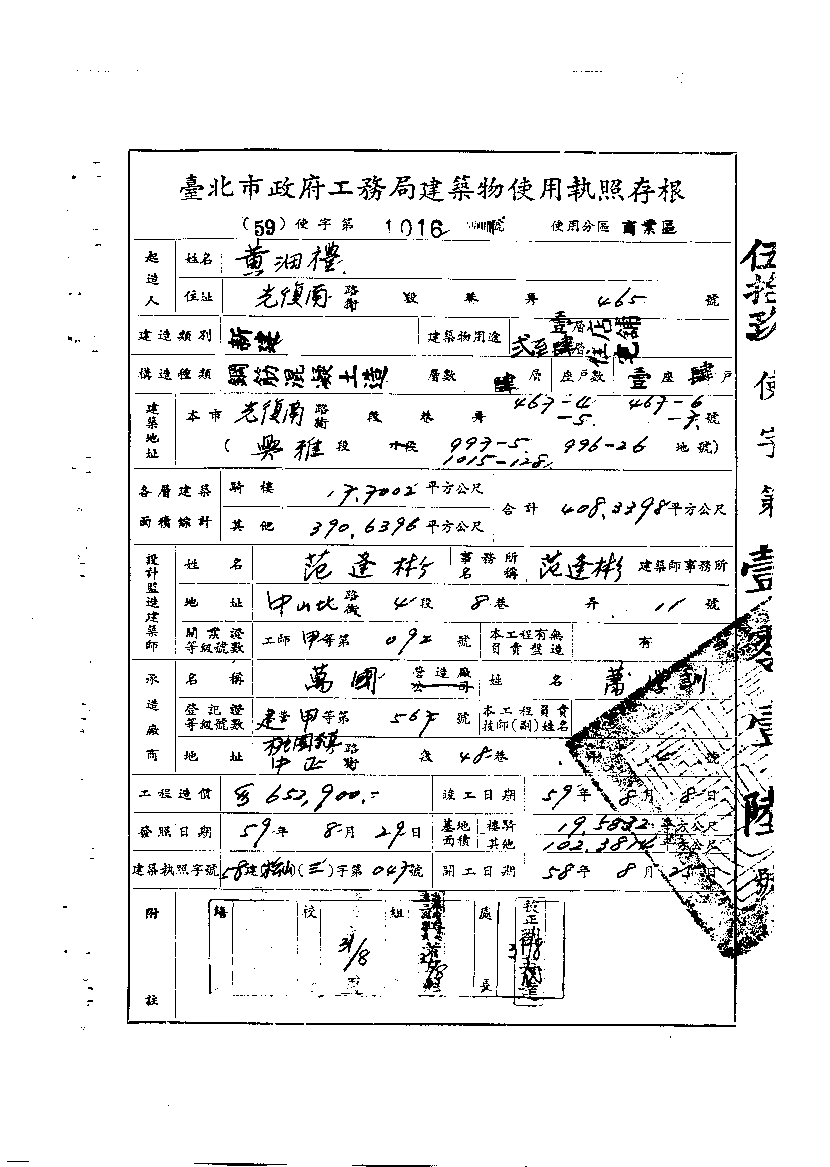 臺北市政府工務局建築物使用執照存根
(59)使字第 1016 號 使用分區 商業區
起造人 姓名 黃油禮
住址 光復南 路街 段 巷 弄 465 號
建造類別 新建 建築物用途 壹層店舖 弍至肆層住宅
構造種類 鋼筋混凝土造 層數 肆層 座戶數 壹座 肆戶
建築地址 本市 光復南 路街 段 巷 弄 467-4 467-6 -5 -7 號
(興雅段 小段 997-5. 996-26 1015-128. 地號)
各層建築面積總計 騎樓 17.7002 平方公尺 合計 408.3398 平方公尺
其他 390.6396 平方公尺
設計監造建築師 姓名 范逢彬 事務所名稱 范逢彬 建築師事務所
地址 中山北 路街 4 段 8 巷 弄 11 號
開業證等級號數 工師 甲等第 092 號 本工程有無負責監造 有
承造廠商 名稱 萬國 營造廠公司 姓名
登記證等級號數 建登甲等第 567 號 本工程負責技師(副)姓名
地址 桃園鎮中正 路街 段 48 巷 弄 號
工程造價 652,900.- 竣工日期 59年 8月 8日
發照日期 59年 8月 29日 基地面積 騎樓 19.5832 平方公尺
其他 102.3814 平方公尺
建築執照字號 58建松山(三)字第047號 開工日期 58年 8月 25日
附註 繕 校 31/8 組 處長 校正
伍拾玖使字第壹零壹陸號